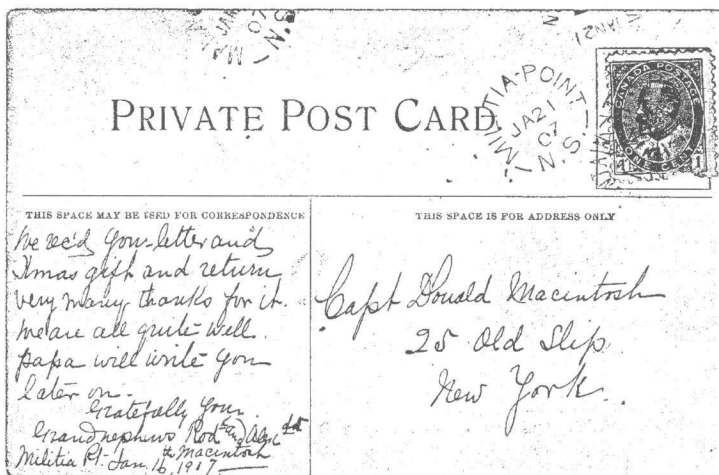 MILITIA-POINT
JA 21
07
N.S.
CANADA POSTAGE
ONE CENT
PRIVATE POST CARD
THIS SPACE MAY BE USED FOR CORRESPONDENCE
We rec'd your letter and
Xmas gift and return
very many thanks for it.
We are all quite well.
Papa will write you
later on.
Gratefully Your
Grandnephews Rod and Alex
Macintosh
Militia Pt. Jan. 16th 1907
THIS SPACE IS FOR ADDRESS ONLY
Capt Donald Macintosh
25 Old Slip
New York.